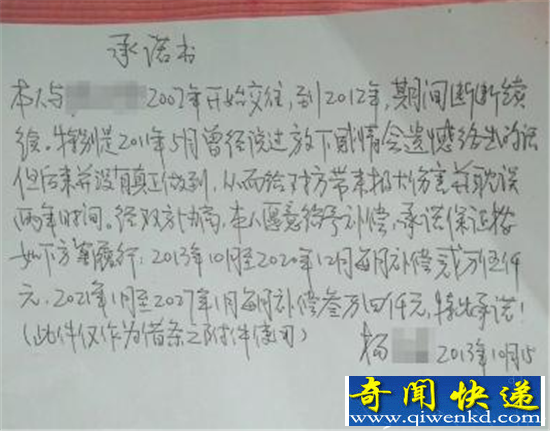 承诺书
本人与 2007年开始交往，到2012年，期间断断续
续。特别是2011年5月曾经说过放下剧情会遗憾终生的话
但后来并没有真正做到，从而给对方带来极大伤害并耽误
两年时间。经双方协商，本人愿意给予补偿，承诺保证按
如下方案履行：2013年10月至2020年12月每月补偿贰万伍仟
元，2021年1月至2027年1月每月补偿叁万四仟元，特此承诺！
（此件仅作为借条之附件使用）
杨 2013年10月15
奇闻快递
www.qiwenkd.com